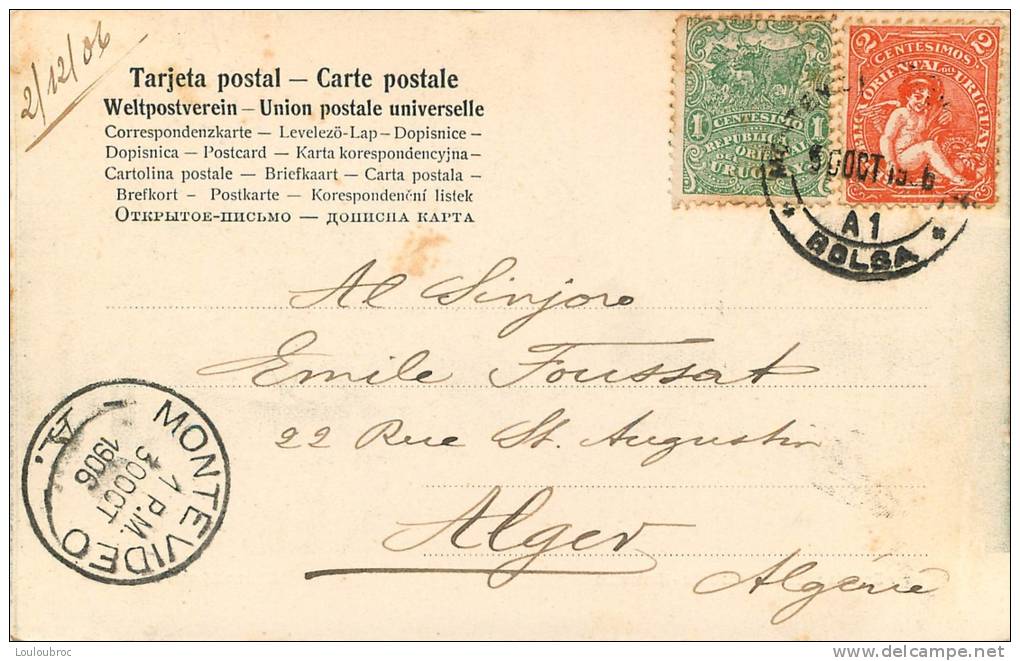 2/12/06
Tarjeta postal — Carte postale
Weltpostverein — Union postale universelle
Correspondenzkarte — Levelezö-Lap — Dopisnice —
Dopisnica — Postcard — Karta korespondencyjna —
Cartolina postale — Briefkaart — Carta postala —
Brefkort — Postkarte — Korespondenční listek
Открытое-письмо — дописна карта
1 CENTESIMO 1
REPUBLICA
ORIENTAL
DEL
URUGUAY
2 CENTESIMOS 2
ORIENTAL DEL URUGUAY
30 OCT 19 6
A1
* BOLSA *
Al Sinjoro
Emile Foussat
22 Rue St. Augustin
Alger
Algérie
MONTEVIDEO
1 P.M.
30 OCT
1906
Louloubroc